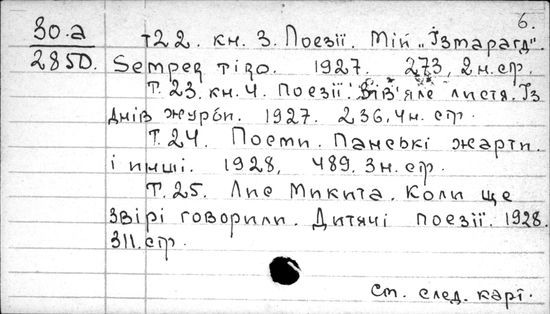 6.
30.а
2850.
т 22. кн. 3. Поезії. Мій "Ізмарагд".
Semper tiro. 1927. 273, 2 н. стр.
Т. 23. кн. 4. Поезії. Зів'яле листя. Із
днів журби. 1927. 236, 4 н. стр.
Т. 24. Поеми. Панські жарти.
і инші. 1928, 489, 3 н. стр.
Т. 25. Лис Микита. Коли ще
звірі говорили. Дитячі поезії. 1928.
311. стр.
См. след. карт.